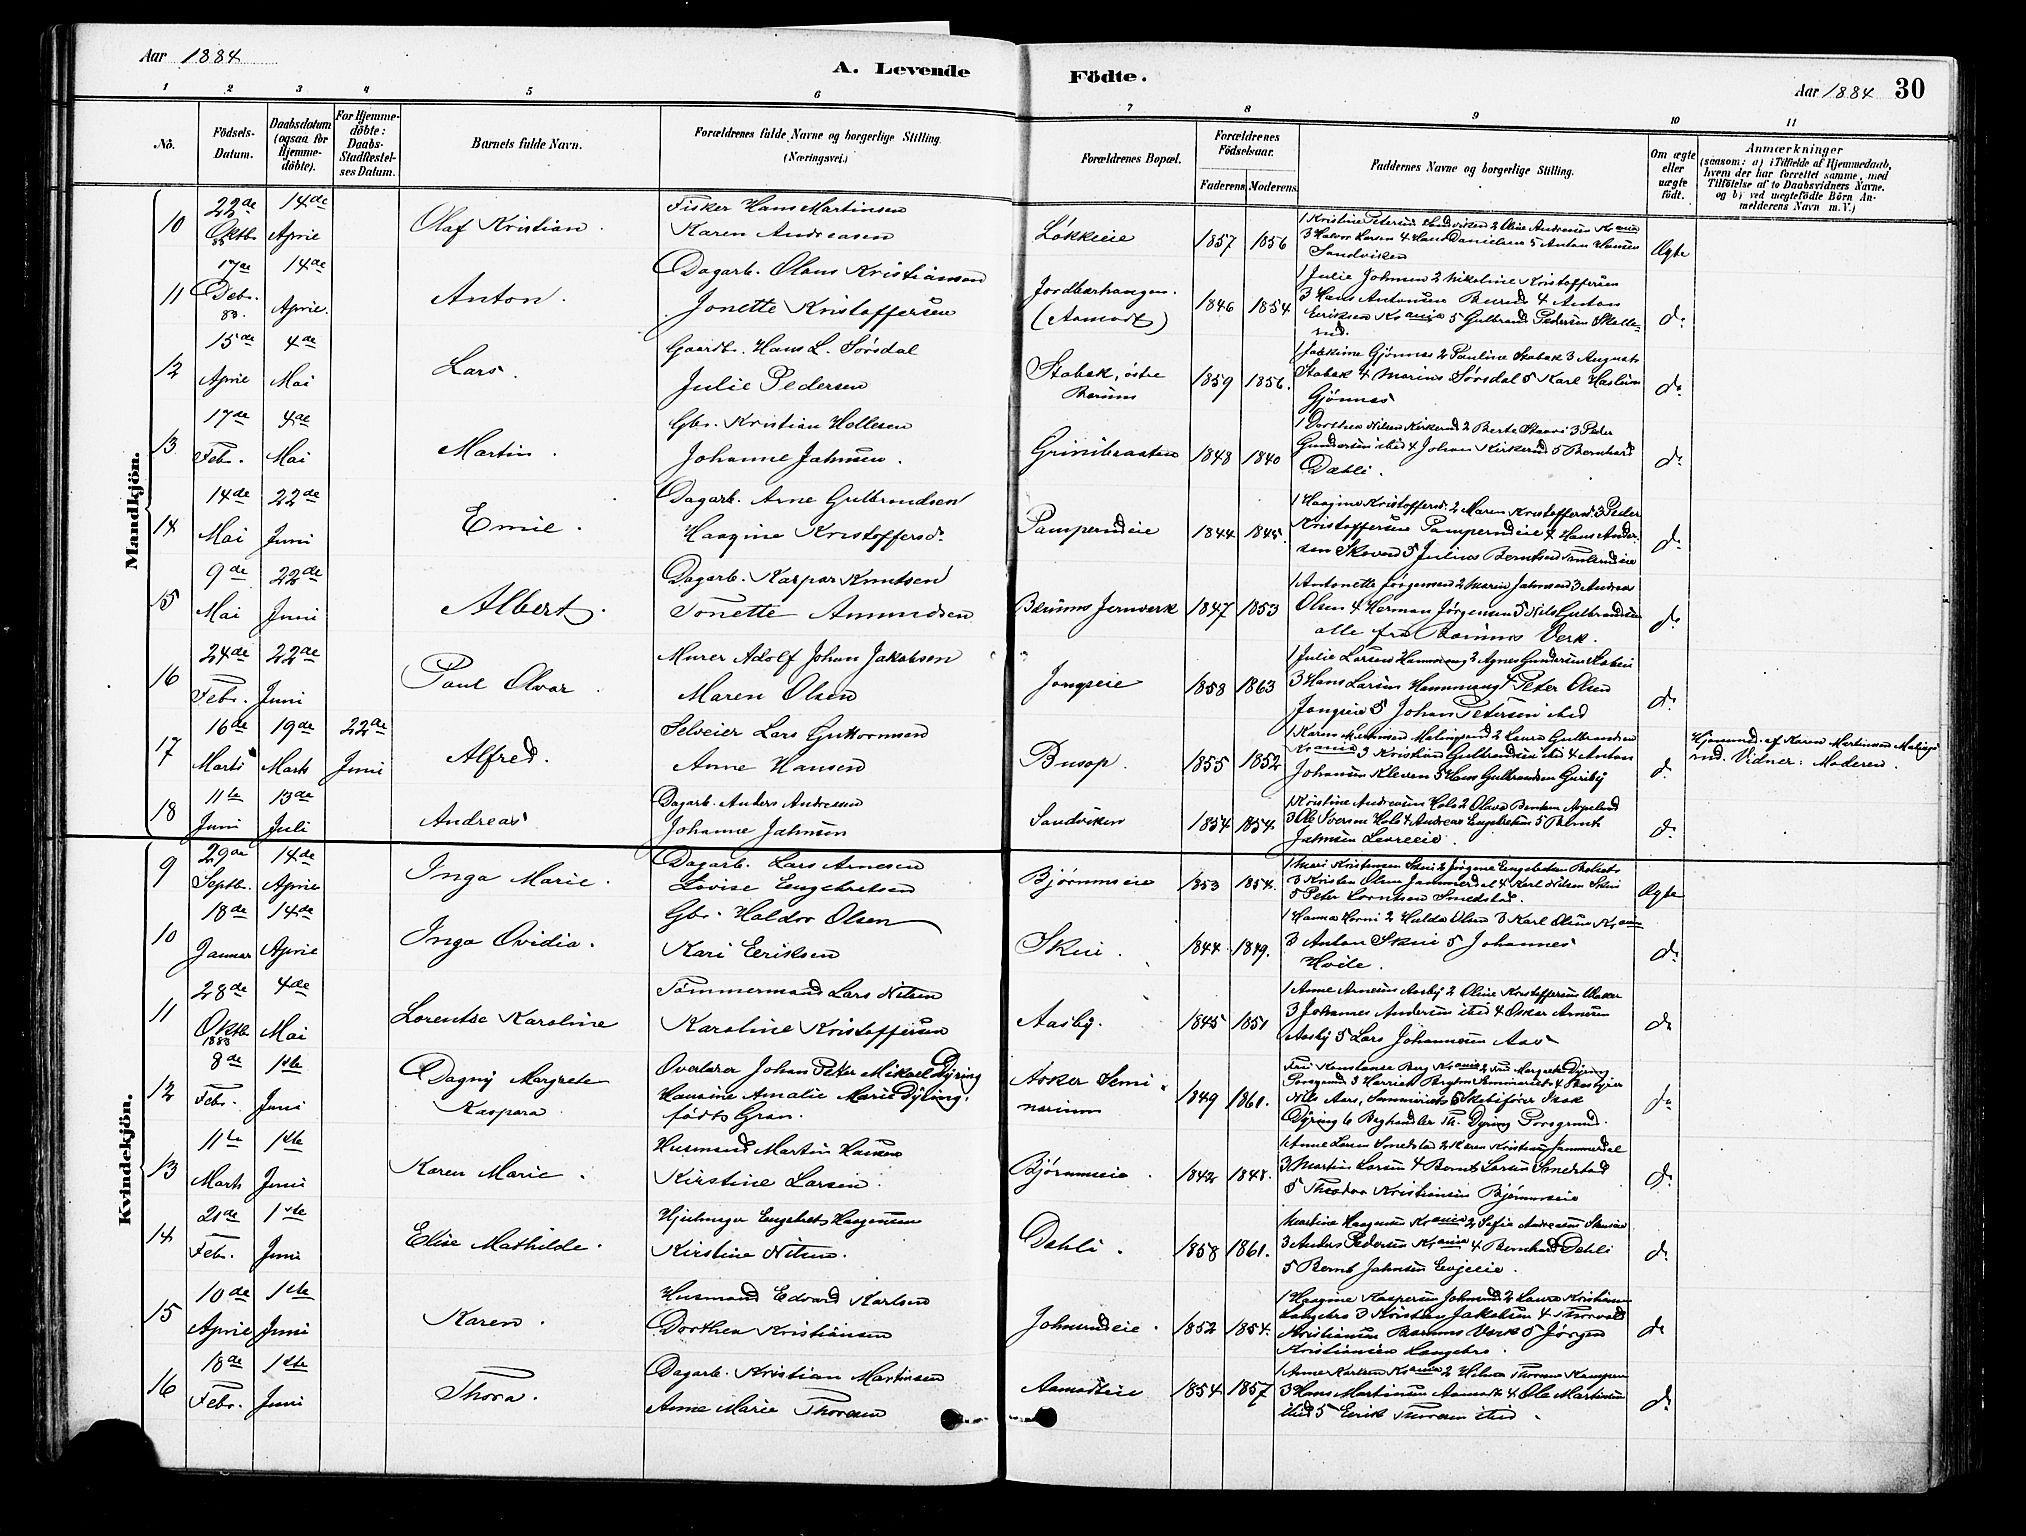 Aar 1884
A. Levende
Födte.
Aar 1884
30
1 2 3 4 5 6 7 8 9 10 11
No.
Födsels-
Datum.
Daabsdatum
(ogsaa for
Hjemme-
döbte).
For Hjemme-
döbte:
Daabs-
Stadfæstel-
ses Datum.
Barnets fulde Navn.
Forældrenes fulde Navne og borgerlige Stilling.
(Næringsvei.)
Forældrenes Bopæl.
Forældrenes
Födselsaar.
Faderens Moderens
Faddernes Navne og borgerlige Stilling.
Om ægte
eller
uægte
født.
Anmærkninger
(saasom: a) i Tilfælde af Hjemmedaab,
hvem der har forrettet samme, med
Tilföielse af to Daabsvidners Navne.
og b) ved uægtefödte Börn An-
melderens Navn m. V.)
Mandkjön.
10 22de Oktbr. 83 14de April
Olaf Kristian
Fisker Hans Martinsen
Karen Andreasen
Løkkeie 1857 1856
1 Kristine Petersen Sandviken 2 Oline Andresen Krania
3 Halvor Larsen 4 Hans Danielsen 5 Anton Hansen
Sandviken
Ægte
11 17de Debr. 83. 14de April.
Anton.
Dagarb. Olaus Kristiansen
Jonette Kristoffersen
Jordbærhaugen.
(Aamodt) 1846 1854
1 Julie Johnsen 2 Nikoline Kristoffersen
3 Hans Antonsen Burud 4 Anton
Eriksen Krania 5 Gulbrand Pedersen Skolle-
rud.
do
12 15de April 4de Mai
Lars.
Gaardbr. Hans L. Sørsdal
Julie Pedersen
Stabæk, østre
Bærum 1859 1856.
1 Joakime Gjønnes 2 Pauline Stabæk 3 August
Stabæk 4 Marius Sørsdal 5 Karl Haslum
Gjønnes
do
13 17de Feb. 4de Mai
Martin.
Gbr. Kristian Hollesen
Johanne Jahnsen.
Grinibraaten 1848 1840
1 Dorthea Nilsen Kirkerud 2 Berte Staavi 3 Peder
Gundersen ibid 4 Johan Kirkerud 5 Bernhard
Dæhli.
do
14 14de Mai 22de Juni
Emil.
Dagarb. Arne Gulbrandsen
Haagine Kristoffersd.
Pamperudeie 1844 1845.
1 Haagine Kristoffersd. 2 Maren Kristoffersd. 3 Peder
Kristoffersen Pamperudeie 4 Hans Ander-
sen Skoven 5 Julius Berntsen
do
15 9de Mai 22de Juni
Albert.
Dagarb. Kaspar Knutsen
Tonette Amundsen
Bærums Jernverk 1847 1853
1 Antonette Jørgensen 2 Marie Jahnsen 3 Andreas
Olsen 4 Herman Jørgensen 5 Nils Gulbrandsen
alle fra Bærums Verk.
do
16 24de Febr. 22de Juni
Paul Alvar.
Murer Adolf Johan Jakobsen
Maren Olsen
Jongseie 1858 1863
1 Julie Larsen Hammang 2 Agnes Gundersen
3 Hans Larsen Hammang 4 Peter Olsen
Jongseie 5 Johan Petersen ibid
do
17 16de Marts 19de Marts 22de Juni
Alfred.
Selveier Lars Guttormsen
Anne Hansen
Busop. 1855 1852
1 Karen Martinsen Malingsrud 2 Laura Gulbrandsen
Krania 3 Kristian Gulbrandsen ibid 4 Anton
Johansen Kleven 5 Hans Gulbrandsen Guriby
d.
Hjemmed. af Karen Martinsen Malings-
rud. Vidner: Moderen.
18 11te Juni 13de Juli
Andreas
Dagarb. Anders Andresen
Johanne Jahnsen
Sandviken 1854 1854.
1 Kristine Andreasen Hols 2 Olava Berntsen
3 Ole Iversen Hols 4 Andreas Engebretsen 5 Bernt
Jahnsen
do
Kvindekjön.
9 29de Septbr. 14de April
Inga Marie.
Dagarb. Lars Arnesen
Lovise Engebretsen
Bjørumseie 1853 1854.
1 Mari Kristensen Skui 2 Jørgine Engebretsen
3 Kristen Olsen Jammerdal 4 Karl Nilsen Skui
5 Peter Lorntsen Smedstad.
Ægte
10 18de Januar 14de April
Inga Ovidia.
Gbr. Haldor Olsen
Kari Eriksen
Skui. 1844 1849.
1 Hanna Horni 2 Hulda Olsen 3 Karl Olsen Krania
3 Anton Skui 5 Johannes
Hvile.
do
11 28de Oktbr. 1883 4de Mai
Lorentse Karoline
Tømmermand Lars Nilsen
Karoline Kristoffersen
Aasby. 1845 1851
1 Anne Arnesen Aasby 2 Oline Kristoffersen
3 Johannes Andersen ibid 4 Oskar Arnesen
Aasby 5 Lars Johannesen Aas
do
12 8de Febr. 1ste Juni
Dagny Margrete
Kaspara.
Overlærer Johan Peter Mikael Dyring
Hansine Amalie Marie Dyring,
født Gran.
Asker Semi-
narium 1849 1861.
Fru Konstanse Berg Krania 2 Fru Margrete Dyring
Porsgrund 3 Harriet Bergton Seminariets 4 Bestyrer
Nils Aars, Seminariets 5 Skibsfører Isak
Dyring 6 Boghandler Th. Dyring Porsgrund.
do
13 11te Marts 1ste Juni
Karen Marie.
Husmand Martin Hansen
Kirstine Larsen.
Bjørumseie. 1842 1848.
1 Anne Larsen Smedstad 2 Karen Kristiansen Jammerdal
3 Martin Larsen 4 Bernt Larsen Smedstad
5 Theodor Kristiansen Bjørumseie
do
14 21de Febr. 1ste Juni
Elise Mathilde.
Hjulmager Engebret Haagensen
Kirstine Nilsen.
Dæhli. 1858 1861.
Martina Haagensen Krania 2 Sofie Andreasen
3 Anders Pedersen Krania 4 Bernhard Dæhli
5 Bernt Jahnsen Evjeeie.
do
15 10de April 1ste Juni
Karen.
Husmand Edvard Karlsen
Dorthea Kristiansen
Johnsrudeie. 1852 1854.
1 Haagine Kaspersen Johnsrud 2 Laura Kristiansen
Langebro 3 Kristian Jakobsen 4 Thorvald
Kristiansen Bærums Verk 5 Jørgen
Kristiansen Langebro.
do
16 18de Febr. 1ste Juni
Thora.
Dagarb. Kristian Martinsen
Anne Marie Thoresen
Aamodteie 1854 1857
1 Anne Karlsen Krania 2 Helene Thoresen Kampen
3 Hans Martinsen Aamodt 4 Ole Martinsen
ibid 5 Eirik Thoresen ibid.
do